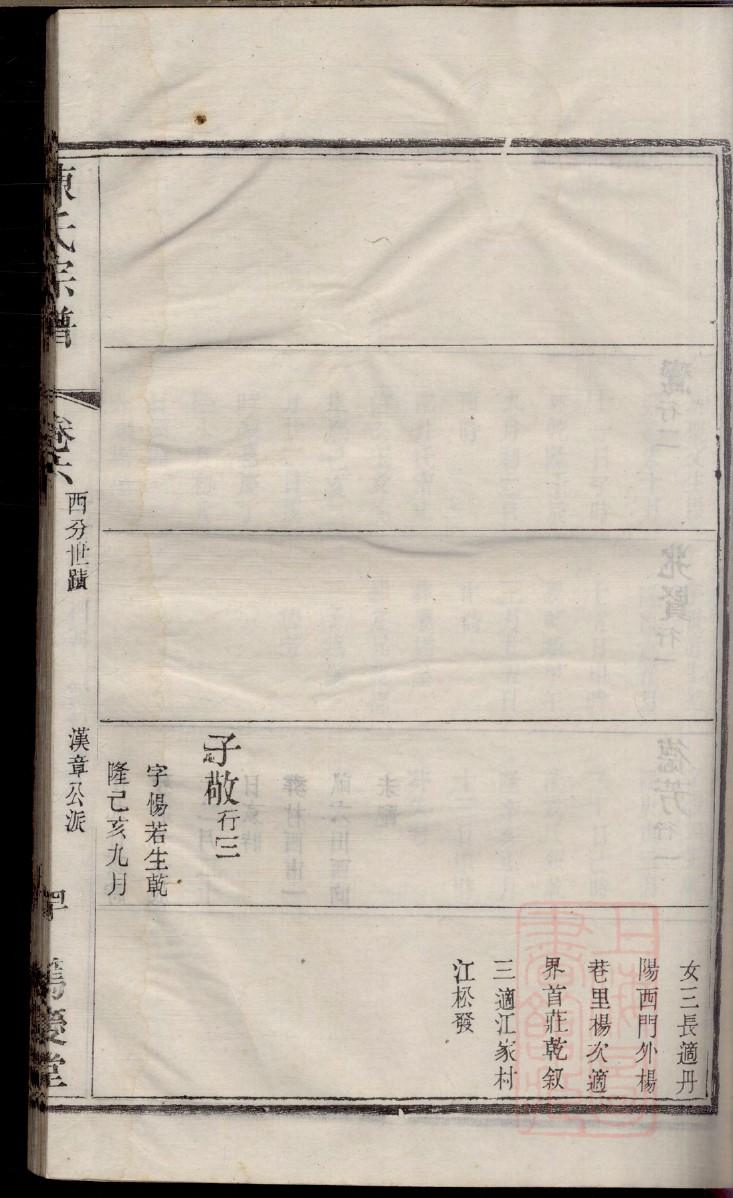 女三長適丹
陽西門外楊
巷里楊次適
界首莊乾叙
三適江家村
江松發
子敬行三
字惕若生乾
隆己亥九月
陳氏宗譜
卷六
西分世蹟
漢章公派
篤慶堂